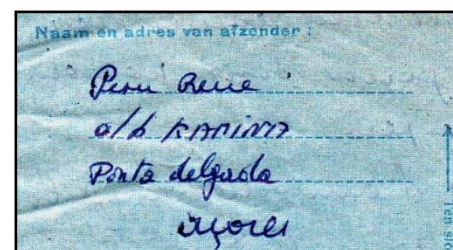 Naam en adres van afzender :
Rene
a/b KAMINA
Ponta delgada
açores